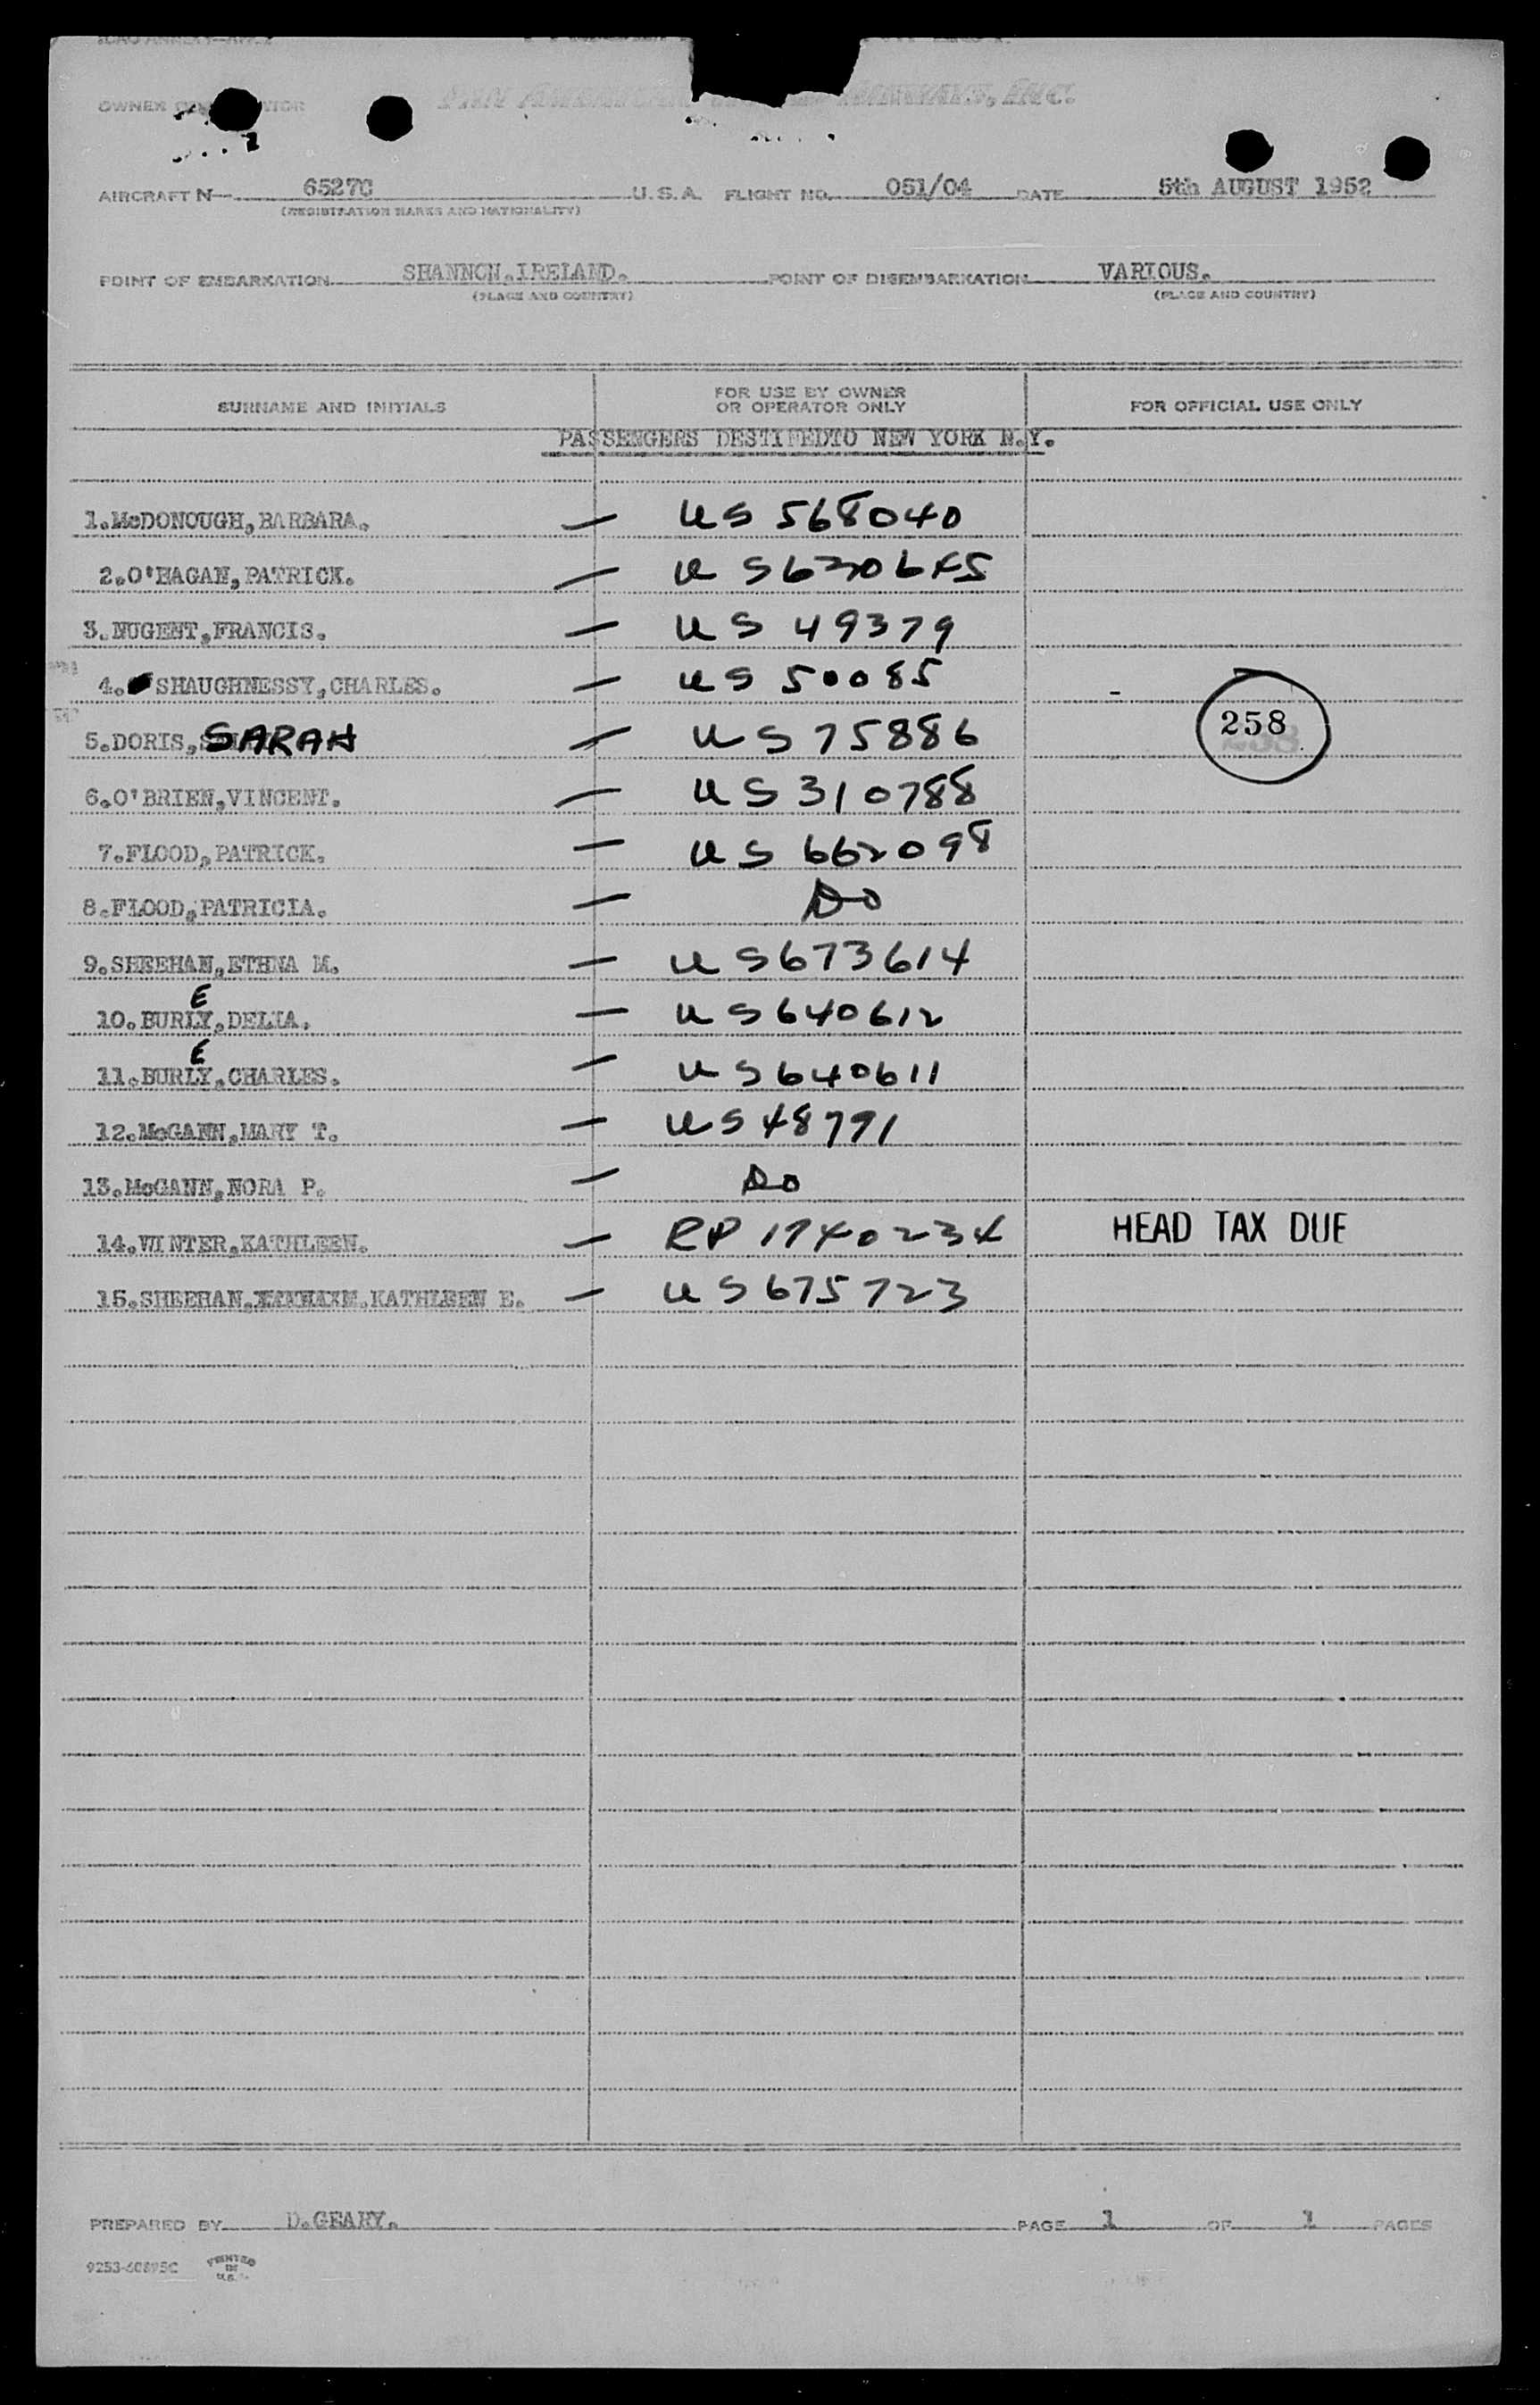 PAN AMERICAN AIRWAYS, INC.
AIRCRAFT N 6527C U.S.A. FLIGHT NO. 051/04 DATE 5th AUGUST 1952
(REGISTRATION MARKS AND NATIONALITY)
POINT OF EMBARKATION SHANNON.IRELAND. POINT OF DISEMBARKATION VARIOUS.
(PLACE AND COUNTRY) (PLACE AND COUNTRY)
SURNAME AND INITIALS FOR USE BY OWNER OR OPERATOR ONLY FOR OFFICIAL USE ONLY
PASSENGERS DESTINEDTO NEW YORK N.Y.
1.McDONOUGH,BARBARA. — US 568040
2.O'HAGAN,PATRICK. — US630645
3.NUGENT,FRANCIS. — US 49379
4. SHAUGHNESSY,CHARLES. — US 50085
5.DORIS, SARAH — US75886 258
6.O'BRIEN,VINCENT. — US310788
7.FLOOD,PATRICK. — US 662098
8.FLOOD,PATRICIA. — DO
9.SHEEHAN,ETHNA M. — US673614
E
10.BURLY,DELIA. — US640612
E
11.BURLY,CHARLES. — US640611
12.McGANN,MARY T. — US48791
13.McGANN,NORA P. — DO
14.WINTER,KATHLEEN. — RP1740234 HEAD TAX DUE
15.SHEEHAN. KATHLEEN E. — US675723
PREPARED BY D.GEARY. PAGE 1 OF 1 PAGES
PRINTED
IN